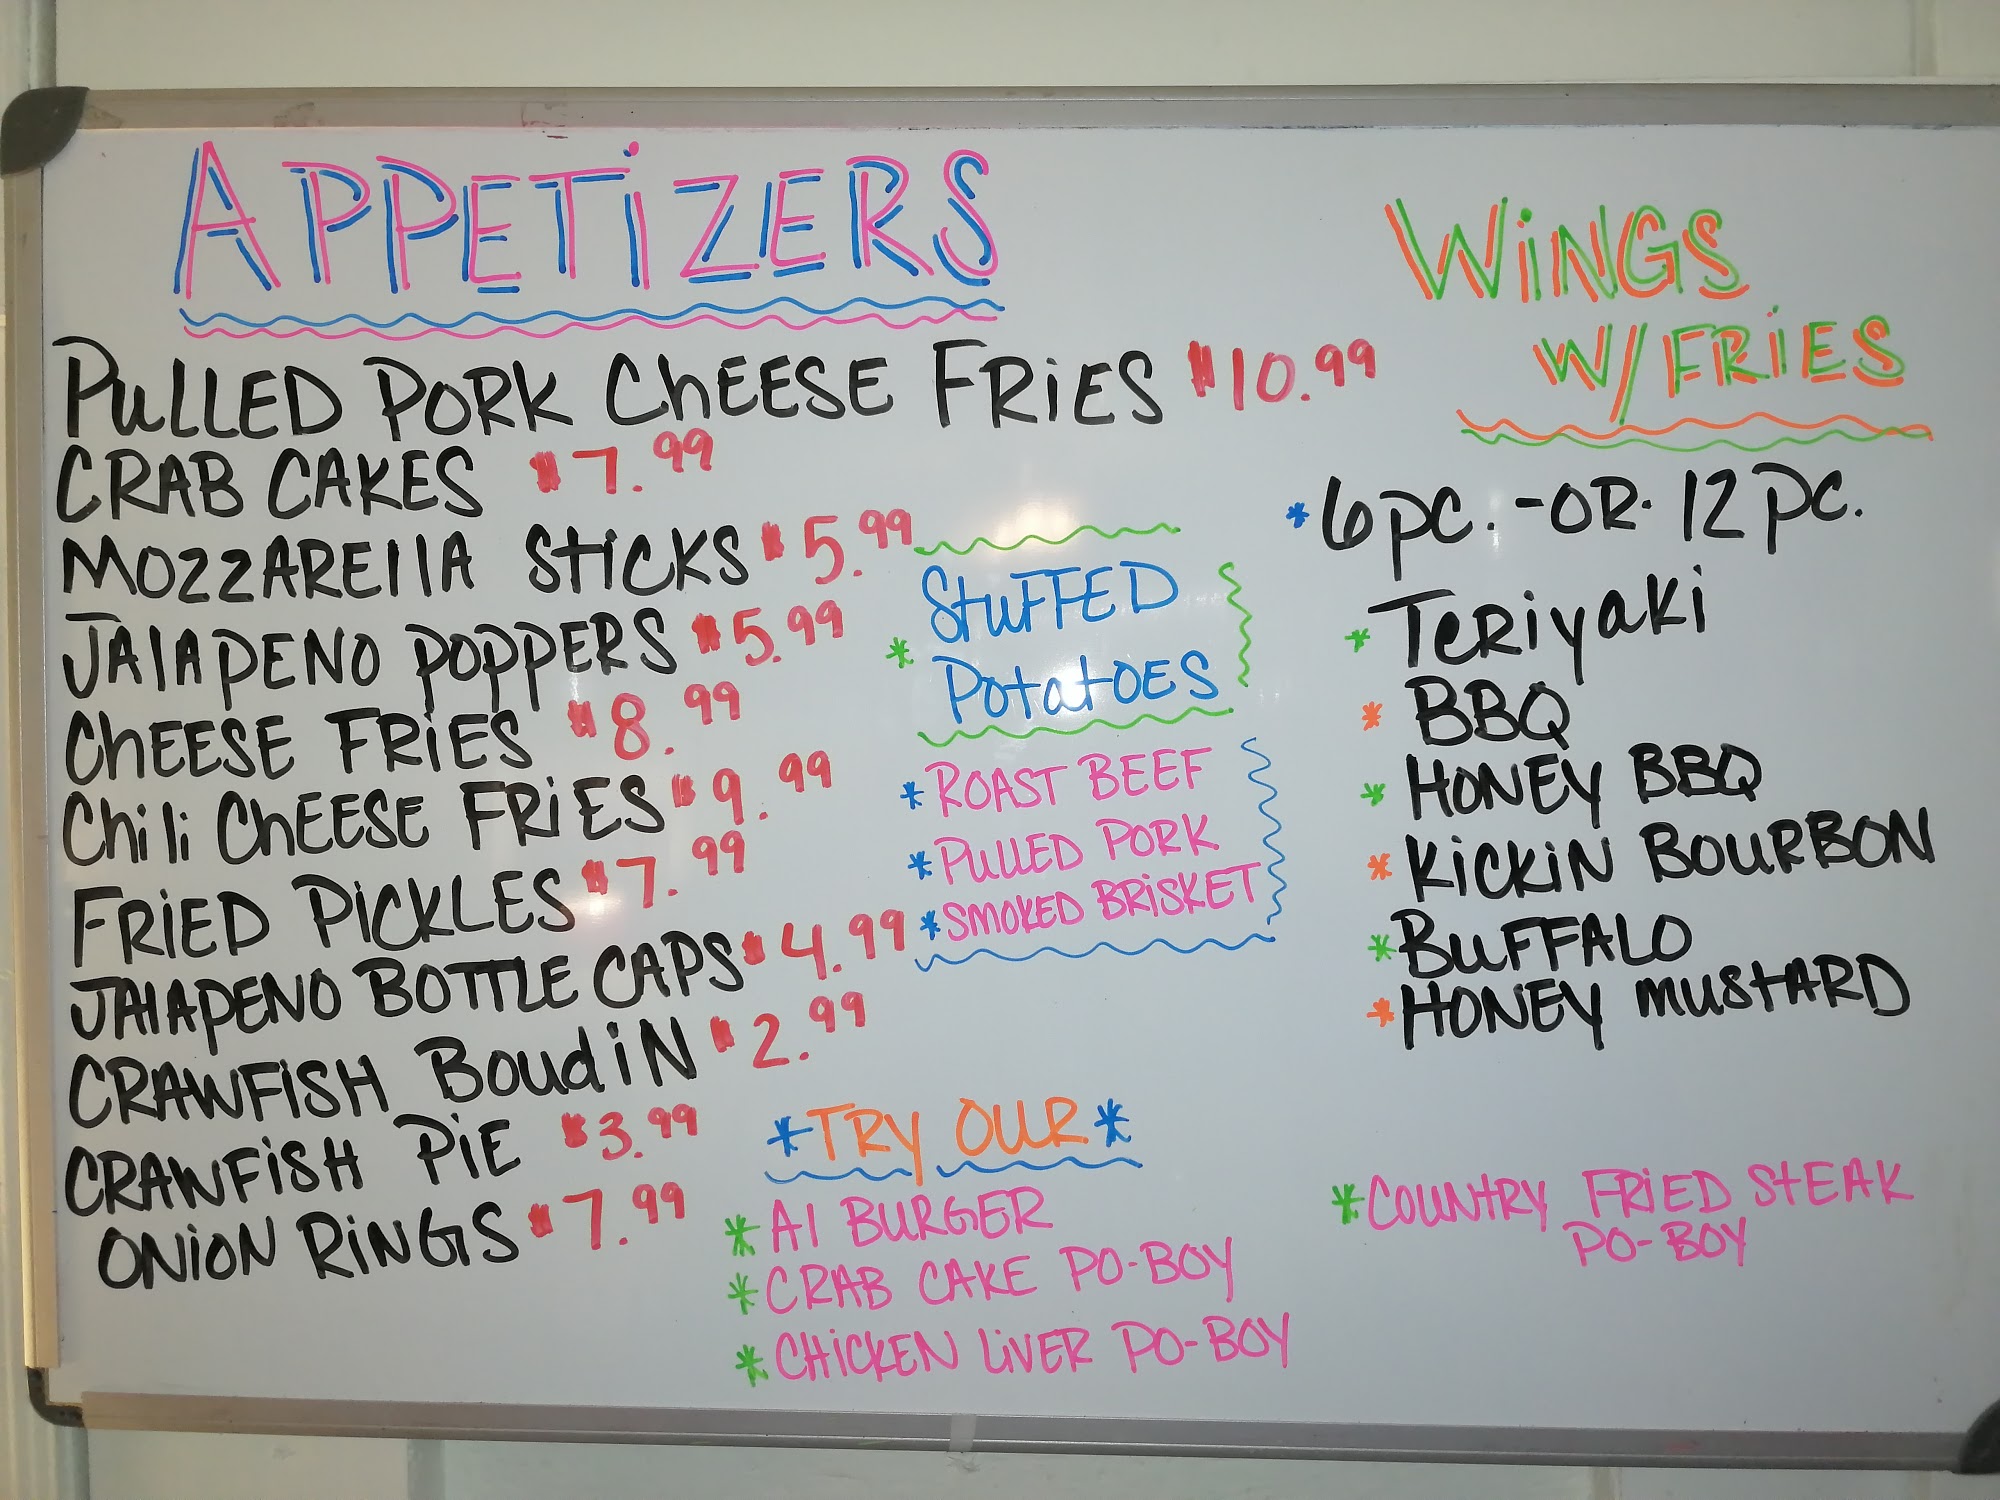 APPETiZERS
PULLED PORK CHEESE FRiES $10.99
CRAB CAKES $7.99
MOZZAREllA StiCKS $5.99
JAlAPENO POPPERS $5.99
CHEESE FRiES $8.99
Chili CHEESE FRiES $9.99
FRiED PiCKLES $7.99
JAlAPENO BOTTLE CAPS $4.99
CRAWFiSH BoudiN $2.99
CRAWFiSH PiE $3.99
ONiON RiNGS $7.99
* StuFFED
PotatOES
* ROAST BEEF
* PULLED PORK
* SMOKED BRiSKET
*TRY OUR*
* A1 BURGER
* CRAB CAKE PO-BOY
* CHiCKEN LiVER PO-BOY
WiNGS
W/FRiES
* 6 pc. -OR- 12 pc.
* TeRiyaki
* BBQ
* HONEY BBQ
* KiCKiN BOURBON
* BUFFALO
* HONEY MUStARD
* COUNtRY FRiED StEAK
PO-BOY